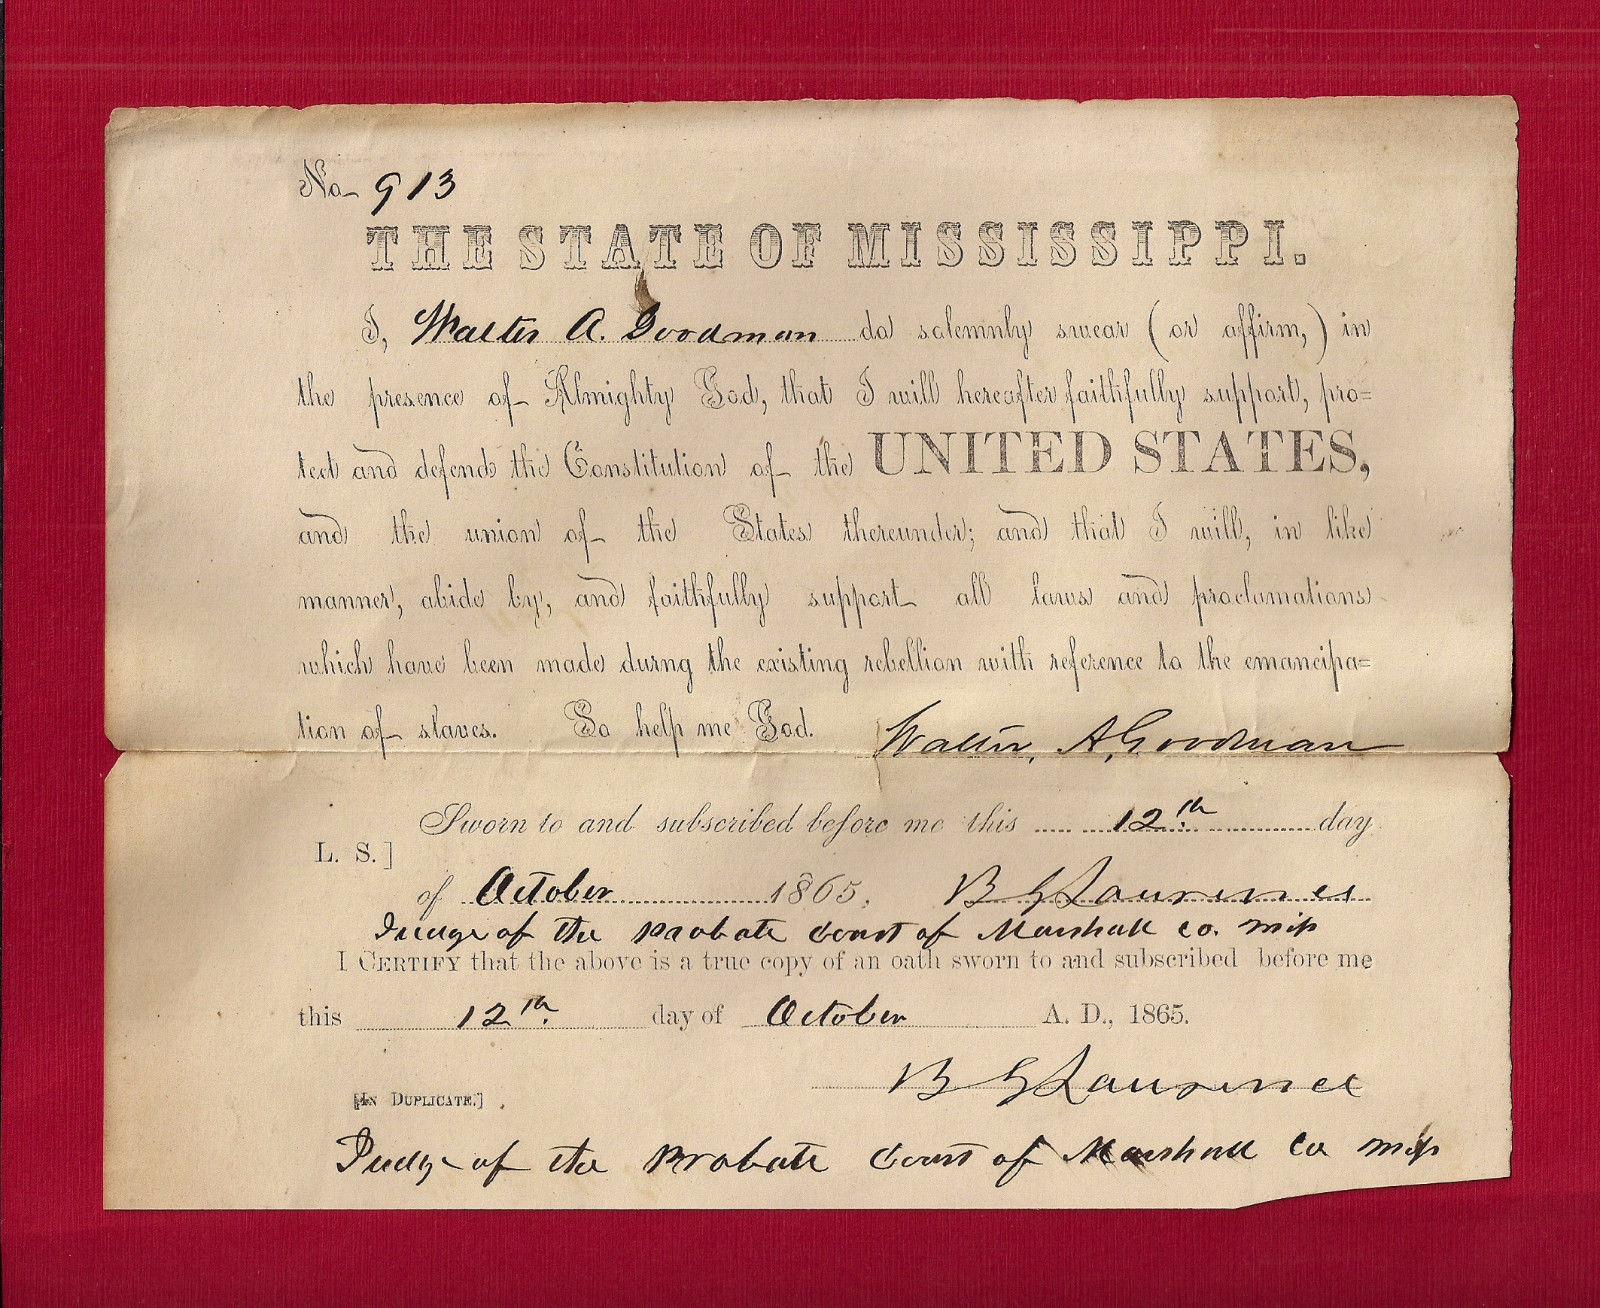 No 913
THE STATE OF MISSISSIPPI.
I, Walter A. Goodman do solemnly swear (or affirm,) in
the presence of Almighty God, that I will hereafter faithfully support, pro=
tect and defend the Constitution of the UNITED STATES,
and the union of the States thereunder; and that I will, in like
manner, abide by, and faithfully support all laws and proclamations
which have been made durng the existing rebellion with reference to the emancipa=
tion of slaves. So help me God. Walter, A, Goodman
Sworn to and subscribed before me this 12th. day
L. S. ]
of October 1865, B G Laurence
Judge of the Probate Court of Marshall Co. Miss
I CERTIFY that the above is a true copy of an oath sworn to and subscribed before me
this 12th. day of October A. D., 1865.
B G Laurence
[IN DUPLICATE.]
Judge of the Probate Court of Marshall Co Miss